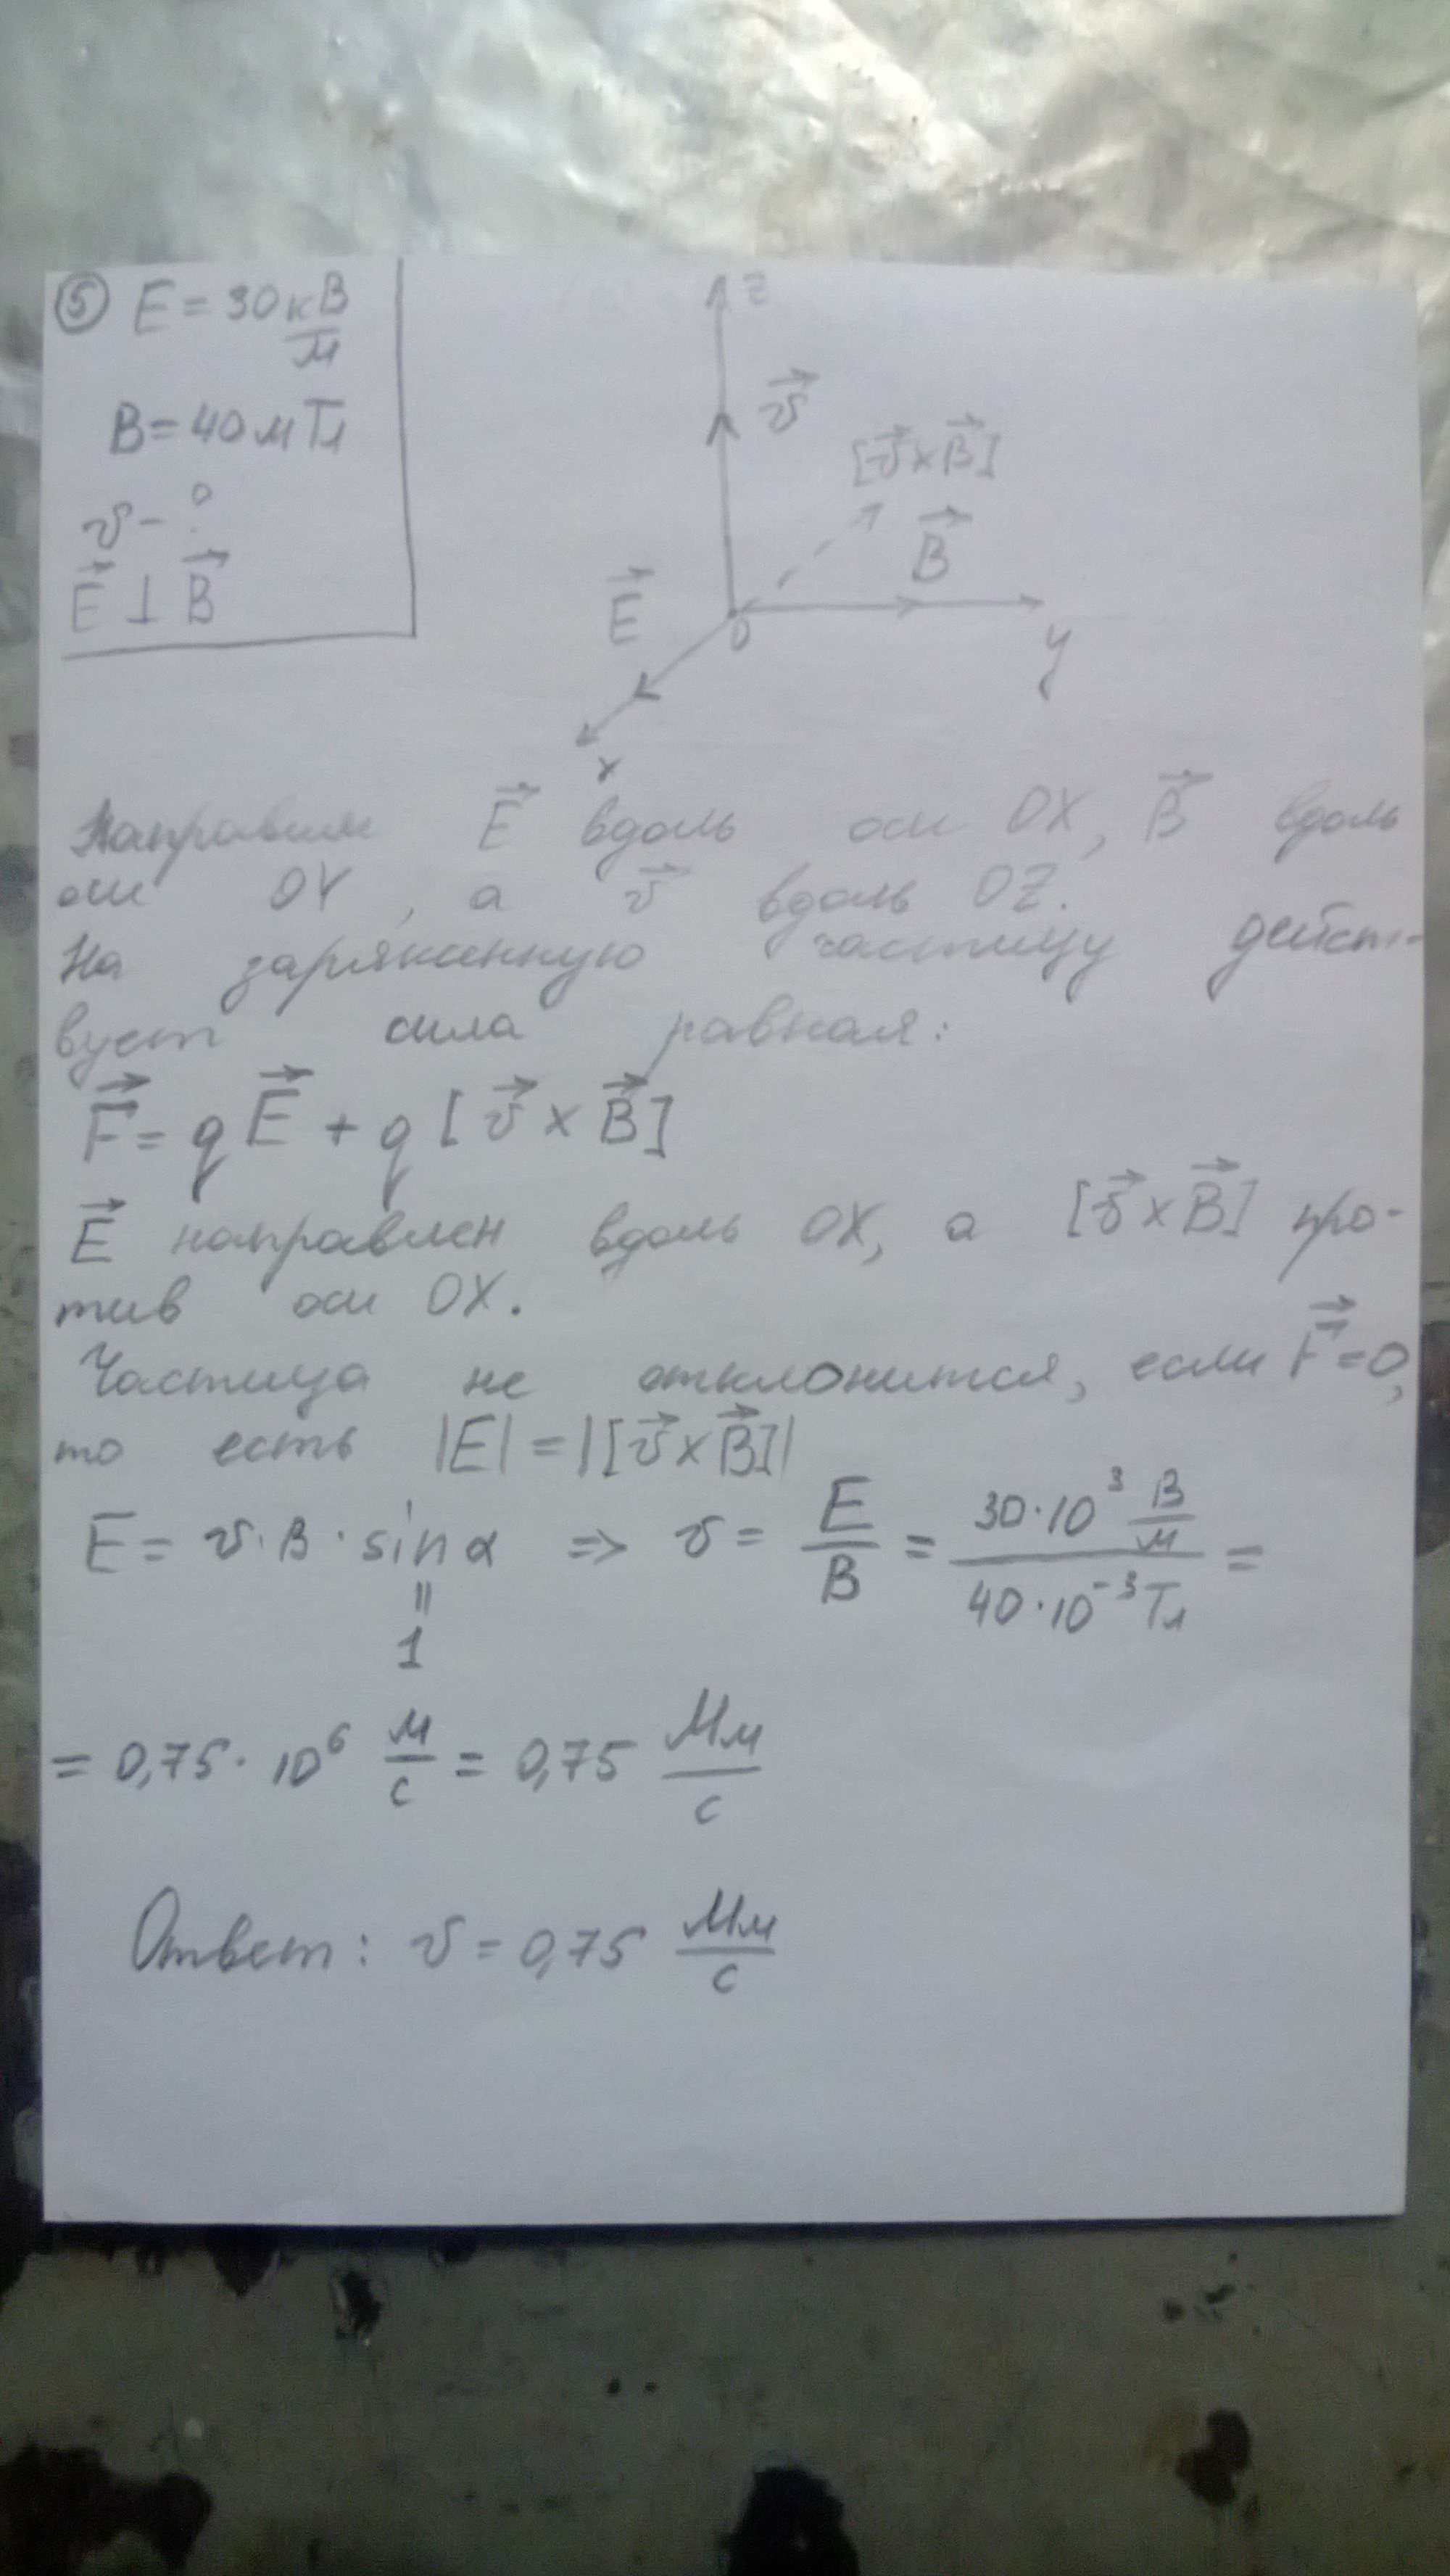 ⑤ E = 30 кВ/м
B = 40 мТл
v - ?
E⃗ ⊥ B⃗
z
v⃗
[v⃗ × B⃗]
B⃗
E⃗
0
y
x
Направим E⃗ вдоль оси OX, B⃗ вдоль
оси OY, а v⃗ вдоль OZ.
На заряженную частицу дейст-
вует сила равная:
F⃗ = qE⃗ + q[v⃗ × B⃗]
E⃗ направлен вдоль OX, а [v⃗ × B⃗] про-
тив оси OX.
Частица не отклонится, если F⃗ = 0,
то есть |E| = |[v⃗ × B⃗]|
E = v · B · sin α ⇒ v = E/B = (30 · 10³ В/м)/(40 · 10⁻³ Тл) =
॥
1
= 0,75 · 10⁶ м/с = 0,75 Мм/с
Ответ: v = 0,75 Мм/с